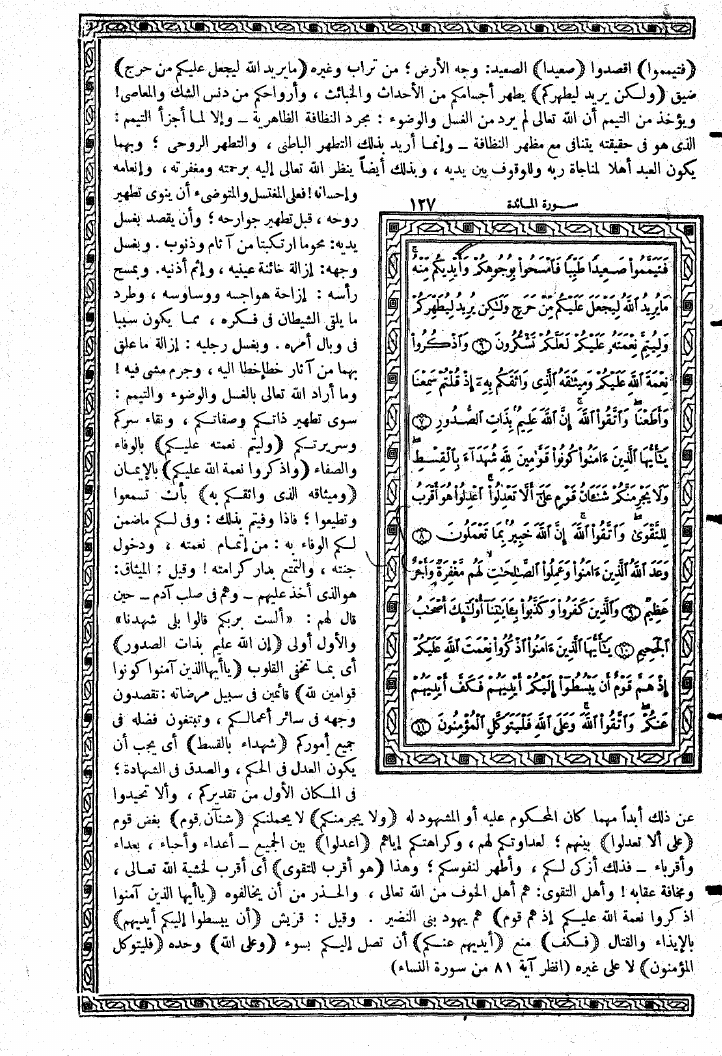 (فتيمموا) اقصدوا (صعيدا) الصعيد: وجه الأرض؛ من تراب وغيره (مايريد الله ليجعل عليكم من حرج)
ضيق (ولكن يريد ليطهركم) يطهر أجسامكم من الأحداث والخبائث، وأرواحكم من دنس الشك والمعاصي!
ويؤخذ من التيمم أن الله تعالى لم يرد من الغسل والوضوء: مجرد النظافة الظاهرية ــ وإلا لما أجزأ التيمم:
الذى هو فى حقيقته يتنافى مع مظهر النظافة ــ وإنما أريد بذلك التطهر الباطنى، والتطهر الروحى؛ وبهما
يكون العبد أهلا لمناجاة ربه وللوقوف بين يديه، وبذلك أيضاً ينظر الله تعالى إليه برحمته ومغفرته، وإنعامه
وإحسانه! فعلى المغتسل والمتوضىء أن ينوى تطهير
روحه، قبل تطهير جوارحه؛ وأن يقصد بغسل
يديه: محو ما ارتكبتا من آثام وذنوب. وبغسل
وجهه: إزالة خائنة عينيه، وإثم أذنيه. وبمسح
رأسه: إزاحة هواجسه ووساوسه، وطرد
ما يلقى الشيطان فى فكره، مما يكون سببا
فى وبال أمره. وبغسل رجليه: إزالة ماعلق
بهما من آثار خطإ خطا اليه، وجرم مشى فيه!
وما أراد الله تعالى بالغسل والوضوء والتيمم:
سوى تطهير ذاتكم وصفاتكم، ونقاء سركم
وسريرتكم (وليتم نعمته عليكم) بالوفاء
والصفاء (واذكروا نعمة الله عليكم) بالإيمان
(وميثاقه الذى واثقكم به) بأن تسمعوا
وتطيعوا؛ فاذا وفيتم بذلك: وفى لكم ماضمن
لكم الوفاء به: من إتمام نعمته، ودخول
جنته، والتمتع بدار كرامته! وقيل: الميثاق:
هو الذى أخذ عليهم ــ وهم فى صلب آدم ــ حين
قال لهم: «ألست بربكم قالوا بلى شهدنا»
والأول أولى (إن الله عليم بذات الصدور)
أى بما تخفى القلوب (ياأيها الذين آمنوا كونوا
قوامين لله) قائمين فى سبيل مرضاته: تقصدون
وجهه فى سائر أعمالكم، وتبتغون فضله فى
جميع أموركم (شهداء بالقسط) أى يجب أن
يكون العدل فى الحكم، والصدق فى الشهادة؛
فى المكان الأول من تقديركم، وألا تحيدوا
سورة المائدة ١٢٧
فَتَيَمَّمُوا۟ صَعِيدًا طَيِّبًا فَٱمْسَحُوا۟ بِوُجُوهِكُمْ وَأَيْدِيكُم مِّنْهُ ۚ
مَا يُرِيدُ ٱللَّهُ لِيَجْعَلَ عَلَيْكُم مِّنْ حَرَجٍ وَلَٰكِن يُرِيدُ لِيُطَهِّرَكُمْ
وَلِيُتِمَّ نِعْمَتَهُۥ عَلَيْكُمْ لَعَلَّكُمْ تَشْكُرُونَ ٦ وَٱذْكُرُوا۟
نِعْمَةَ ٱللَّهِ عَلَيْكُمْ وَمِيثَٰقَهُ ٱلَّذِى وَاثَقَكُم بِهِۦٓ إِذْ قُلْتُمْ سَمِعْنَا
وَأَطَعْنَا ۖ وَٱتَّقُوا۟ ٱللَّهَ ۚ إِنَّ ٱللَّهَ عَلِيمٌۢ بِذَاتِ ٱلصُّدُورِ ٧
يَٰٓأَيُّهَا ٱلَّذِينَ ءَامَنُوا۟ كُونُوا۟ قَوَّٰمِينَ لِلَّهِ شُهَدَآءَ بِٱلْقِسْطِ ۖ
وَلَا يَجْرِمَنَّكُمْ شَنَـَٔانُ قَوْمٍ عَلَىٰٓ أَلَّا تَعْدِلُوا۟ ۚ ٱعْدِلُوا۟ هُوَ أَقْرَبُ
لِلتَّقْوَىٰ ۖ وَٱتَّقُوا۟ ٱللَّهَ ۚ إِنَّ ٱللَّهَ خَبِيرٌۢ بِمَا تَعْمَلُونَ ٨
وَعَدَ ٱللَّهُ ٱلَّذِينَ ءَامَنُوا۟ وَعَمِلُوا۟ ٱلصَّٰلِحَٰتِ ۙ لَهُم مَّغْفِرَةٌ وَأَجْرٌ
عَظِيمٌ ٩ وَٱلَّذِينَ كَفَرُوا۟ وَكَذَّبُوا۟ بِـَٔايَٰتِنَآ أُو۟لَٰٓئِكَ أَصْحَٰبُ
ٱلْجَحِيمِ ١٠ يَٰٓأَيُّهَا ٱلَّذِينَ ءَامَنُوا۟ ٱذْكُرُوا۟ نِعْمَتَ ٱللَّهِ عَلَيْكُمْ
إِذْ هَمَّ قَوْمٌ أَن يَبْسُطُوٓا۟ إِلَيْكُمْ أَيْدِيَهُمْ فَكَفَّ أَيْدِيَهُمْ
عَنكُمْ ۖ وَٱتَّقُوا۟ ٱللَّهَ ۚ وَعَلَى ٱللَّهِ فَلْيَتَوَكَّلِ ٱلْمُؤْمِنُونَ ١١
عن ذلك أبداً مهما كان المحكوم عليه أو المشهود له (ولا يجرمنكم) لا يحملنكم (شنآن قوم) بغض قوم
(على ألا تعدلوا) بينهم؛ لعداوتكم لهم، وكراهتكم إياهم (اعدلوا) بين الجميع ــ أعداء وأحباء، بعداء
وأقرباء ــ فذلك أزكى لكم، وأطهر لنفوسكم؛ وهذا (هو أقرب للتقوى) أى أقرب لخشية الله تعالى،
ومخافة عقابه! وأهل التقوى: هم أهل الخوف من الله تعالى، والحذر من أن يخالفوه (ياأيها الذين آمنوا
اذكروا نعمة الله عليكم إذ هم قوم) هم يهود بنى النضير. وقيل: قريش (أن يبسطوا إليكم أيديهم)
بالإيذاء والقتال (فكف) منع (أيديهم عنكم) أن تصل إليكم بسوء (وعلى الله) وحده (فليتوكل
المؤمنون) لا على غيره (انظر آية ٨١ من سورة النساء)